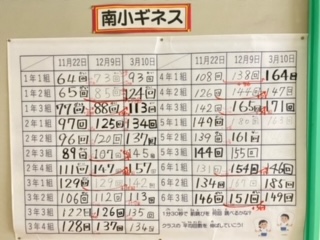 南小ギネス
11月22日 12月9日 3月10日 11月22日 12月9日 3月10日
1年1組 64回 73回 93回 4年1組 108回 138回 164回
1年2組 65回 85回 124回 4年2組 126回 144回 147回
1年3組 77回 88回 113回 4年3組 142回 165回 171回
2年1組 97回 125回 134回 5年1組 149回
2年2組 96回 120回 137回 5年2組 139回 161回
2年3組 89回 107回 145回 5年3組 144回 155回
2年4組 111回 147回 157回 6年1組 154回
3年1組 129回 142回 6年2組 134回 183回
3年2組 106回 112回 113回 6年3組 146回 151回 149回
3年3組 122回 126回
3年4組 128回 137回 134回
1分30秒で 前跳びを 何回 跳べるかな?
クラスの 平均回数を 伸ばしていこう!